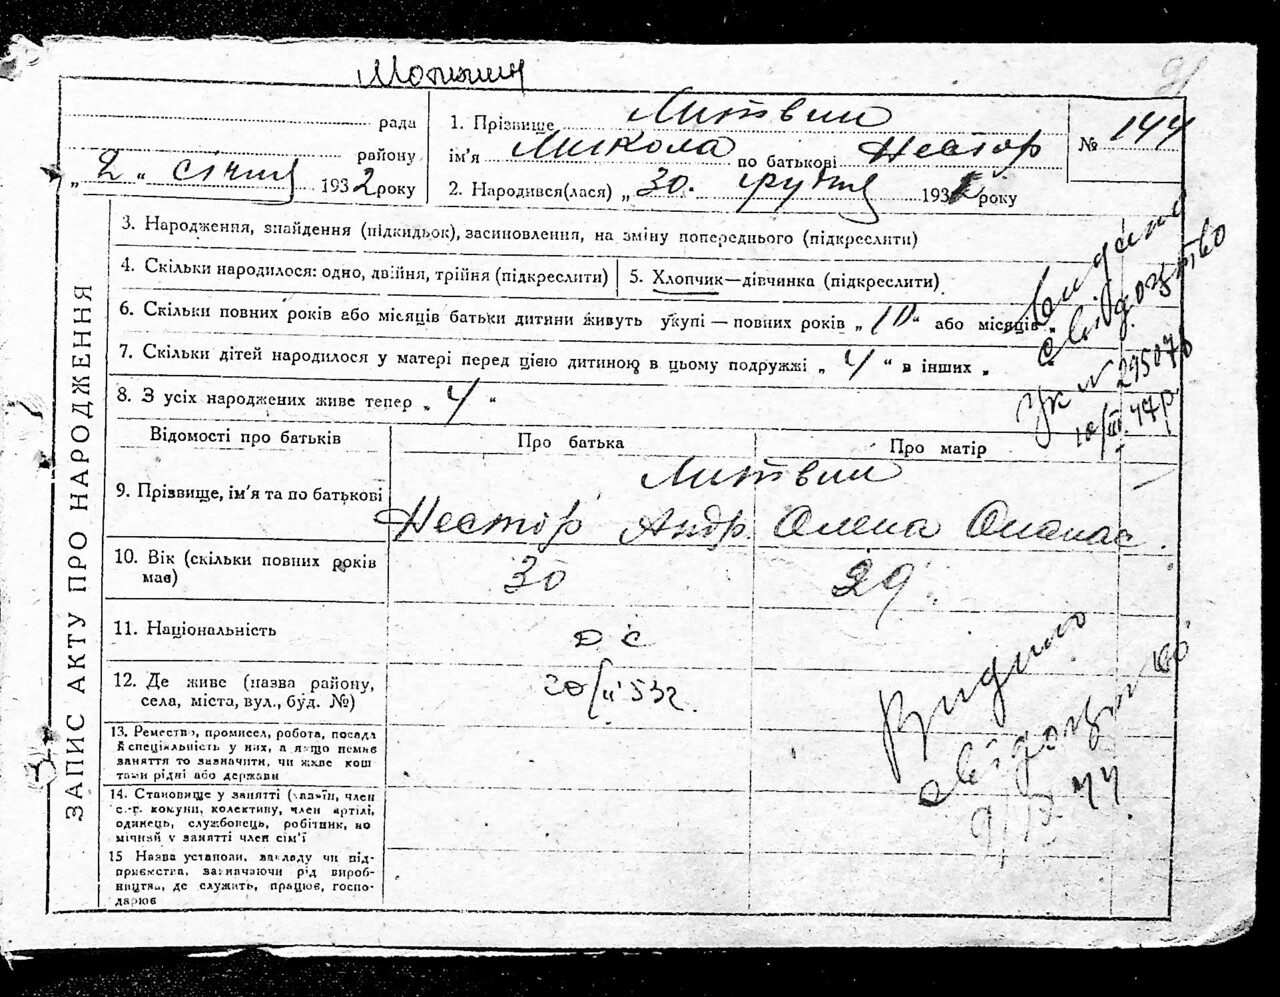 Мотижин
рада
району
„ 2 “ січня 1932 року
1. Прізвище Литвин
ім'я Микола по батькові Нестор
2. Народився(лася) „ 30. грудня 1931 року
№ 144
ЗАПИС АКТУ ПРО НАРОДЖЕННЯ
3. Народження, знайдення (підкидьок), засиновлення, на зміну попереднього (підкреслити)
4. Скільки народилося: одно, двійня, трійня (підкреслити)
5. Хлопчик—дівчинка (підкреслити)
6. Скільки повних років або місяців батьки дитини живуть укупі — повних років „ 10 “ або місяців „
7. Скільки дітей народилося у матері перед цією дитиною в цьому подружжі „ 4 “ в інших „
8. З усіх народжених живе тепер „ 4 “
Видано
свідоцтво
Ук № 295070
10/III 47р
Відомості про батьків
Про батька
Про матір
9. Прізвище, ім'я та по батькові
Литвин
Нестор Андр. Олена Опанас.
10. Вік (скільки повних років
має)
30
29.
11. Національність
12. Де живе (назва району,
села, міста, вул., буд. №)
20/II 532
Видано
свідоцтво
9/IV 44
13. Ремество, промисел, робота, посада
й спеціяльність у них, а якщо немає
заняття то зазначити, чи живе кош
тами рідні або держави
14. Становище у занятті (хазяїн, член
с.-г. комуни, колективу, член артілі,
одинець, службовець, робітник, по
мічний у занятті член сім'ї
15 Назва установи, закладу чи під-
приємства, зазначаючи рід вироб-
ництва, де служить, працює, госпо-
дарює